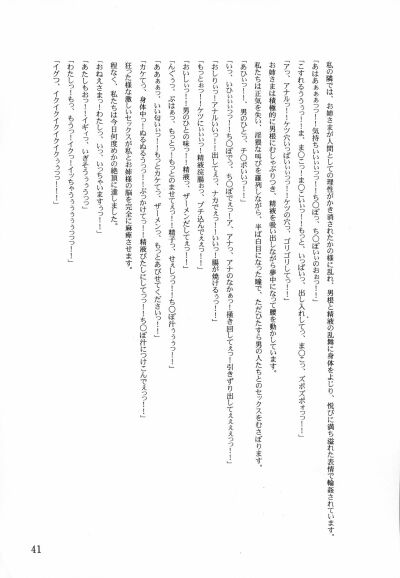 私の隣では、お姉さまが人間としての理性がかき消されたかの様に乱れ、男根と精液の乱舞に身体をよじり、悦びに満ち溢れた表情で輪姦されています。
「あはあぁぁぁっっ！！気持ちいいいっっ！！ち〇ぽっ、ち〇ぽいいのぉぉっ！！」
「こすれるぅぅぅっっ！ま、ま〇こっ！ま〇こいいっ！もっと、いっぱいっ、出し入れしてっ、ま〇こっ、ズボズボォっっ！！」
「アっ、アナルっっ！ケツ穴いっぱいいいっっ！ケツの穴っ、ゴリゴリしてっっ！！」
お姉さまは積極的に男根にむしゃぶりつき、精液を吸い出しながら夢中になって腰を動かしています。
私たちは正気を失い、淫猥な叫びを羅列しながら、半ば白目になった瞳で、ただひたすら男の人たちとのセックスをむさぼります。
「あひいっ！、男のひとっ、チ〇ポいいっっ！」
「いっ、ひいぃいっっ！ち〇ぽでっ、ち〇ぽでぇっ！ア、アナっ、アナのなかぁっ！掻き回してぇっ！引きずり出してぇぇぇぇっっ！」
「おしりぃっ！アナルいいっっ！出してぇっ、ナカでぇっ！いいっ！腸が焼けるぅっっ！」
「もっとぉっ！ケツにぃぃっ！精液浣腸ぉっ、ブチ込んでぇぇっ！！」
「おいしいぃっ！男のひとの味っ！精液っ、ザーメンだしてぇっっ！」
「んぐぅっ、ぷはぁっ、もっとっ！もっとのませてぇっっ！精子っ、せえしっっ！ち〇ぽ汁ぅぅぅっっ！」
「あああぁっ、いい匂いっっ！もっとカケてっ、ザーメンっ、もっとあびせてくださいっっ！」
「カケてっ、身体中っ！ぬるぬるうっっ！ぶっかけてっ！！精液びたしにしてっっ！ち〇ぽ汁につけこんでぇっっ！！」
狂った様な激しいセックスが私とお姉様の脳を完全に麻痺させます。
程なく、私たちは今日何度めかの絶頂に達しました。
「おねえさまっ！わたしっ、いっ、いっちゃいますっっ！」
「あたしもおっ！イギィっ、いぎそうぅぅぅっっ」
「わたしっ！もっ、もうっ！イクっ！イッちゃうぅぅぅぅぅっっ！」
「イグっっ、イクイクイクイクイクぅぅっっ！！！」
41